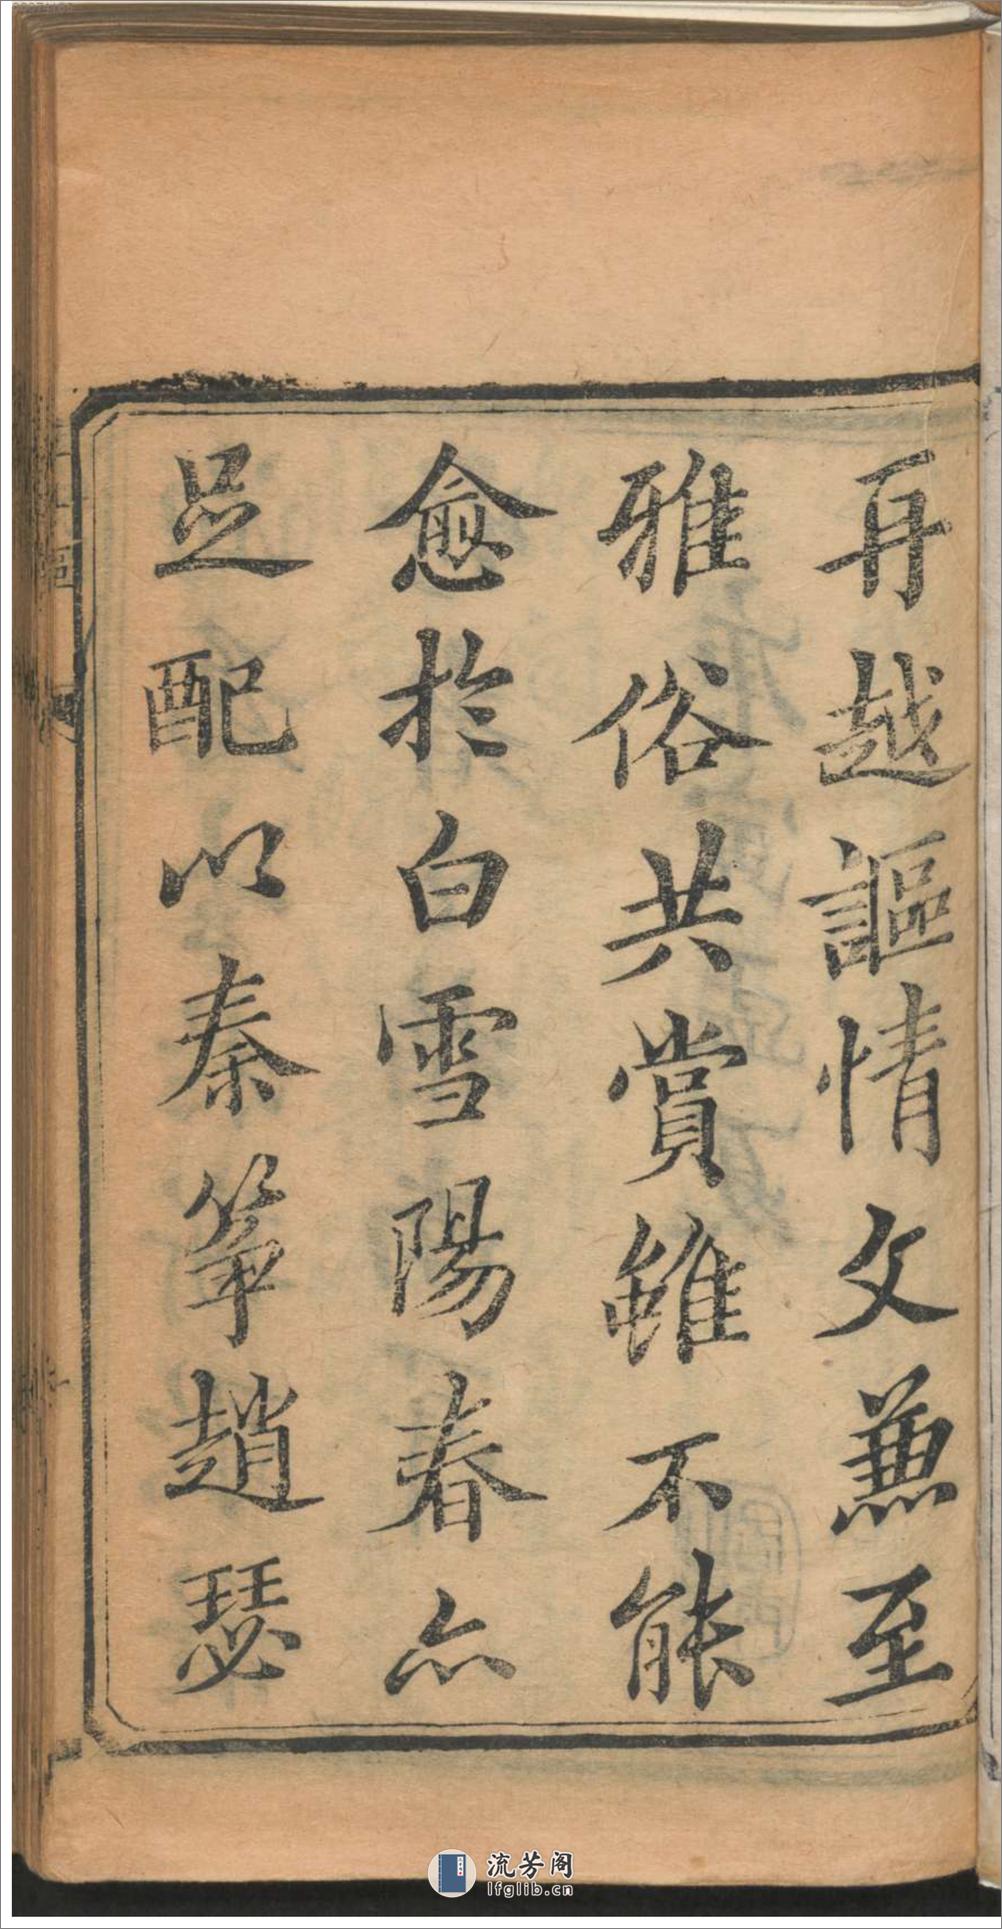 再越謳情文兼至
雅俗共賞雖不能
愈於白雪陽春亦
足配以秦箏趙瑟
流芳阁
lfglib.cn